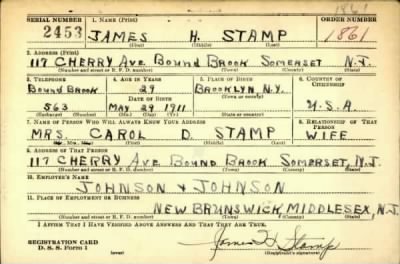 1861
SERIAL NUMBER 1. NAME (Print) ORDER NUMBER
2453 JAMES H. STAMP 1861
(First) (Middle) (Last)
2. ADDRESS (Print)
117 CHERRY AVE BOUND BROOK SOMERSET N.J.
(Number and street or R. F. D. number) (Town) (County) (State)
3. TELEPHONE 4. AGE IN YEARS 5. PLACE OF BIRTH 6. COUNTRY OF CITIZENSHIP
BOUND BROOK 29 BROOKLYN N.Y.
DATE OF BIRTH
563 MAY 29 1911 U.S.A.
(Exchange) (Number) (Mo.) (Day) (Yr.) (State or country)
7. NAME OF PERSON WHO WILL ALWAYS KNOW YOUR ADDRESS 8. RELATIONSHIP OF THAT PERSON
MRS. CAROL D STAMP WIFE
(Mr., Mrs., Miss) (First) (Middle) (Last)
9. ADDRESS OF THAT PERSON
117 CHERRY AVE BOUND BROOK SOMERSET, N.J.
(Number and street or R. F. D. number) (Town) (County) (State)
10. EMPLOYER'S NAME
JOHNSON & JOHNSON
11. PLACE OF EMPLOYMENT OR BUSINESS
NEW BRUNSWICK, MIDDLESEX, N.J.
(Number and street or R. F. D. number) (Town) (County) (State)
I AFFIRM THAT I HAVE VERIFIED ABOVE ANSWERS AND THAT THEY ARE TRUE.
REGISTRATION CARD
D. S. S. Form 1
James H Stamp
(Registrant's signature)